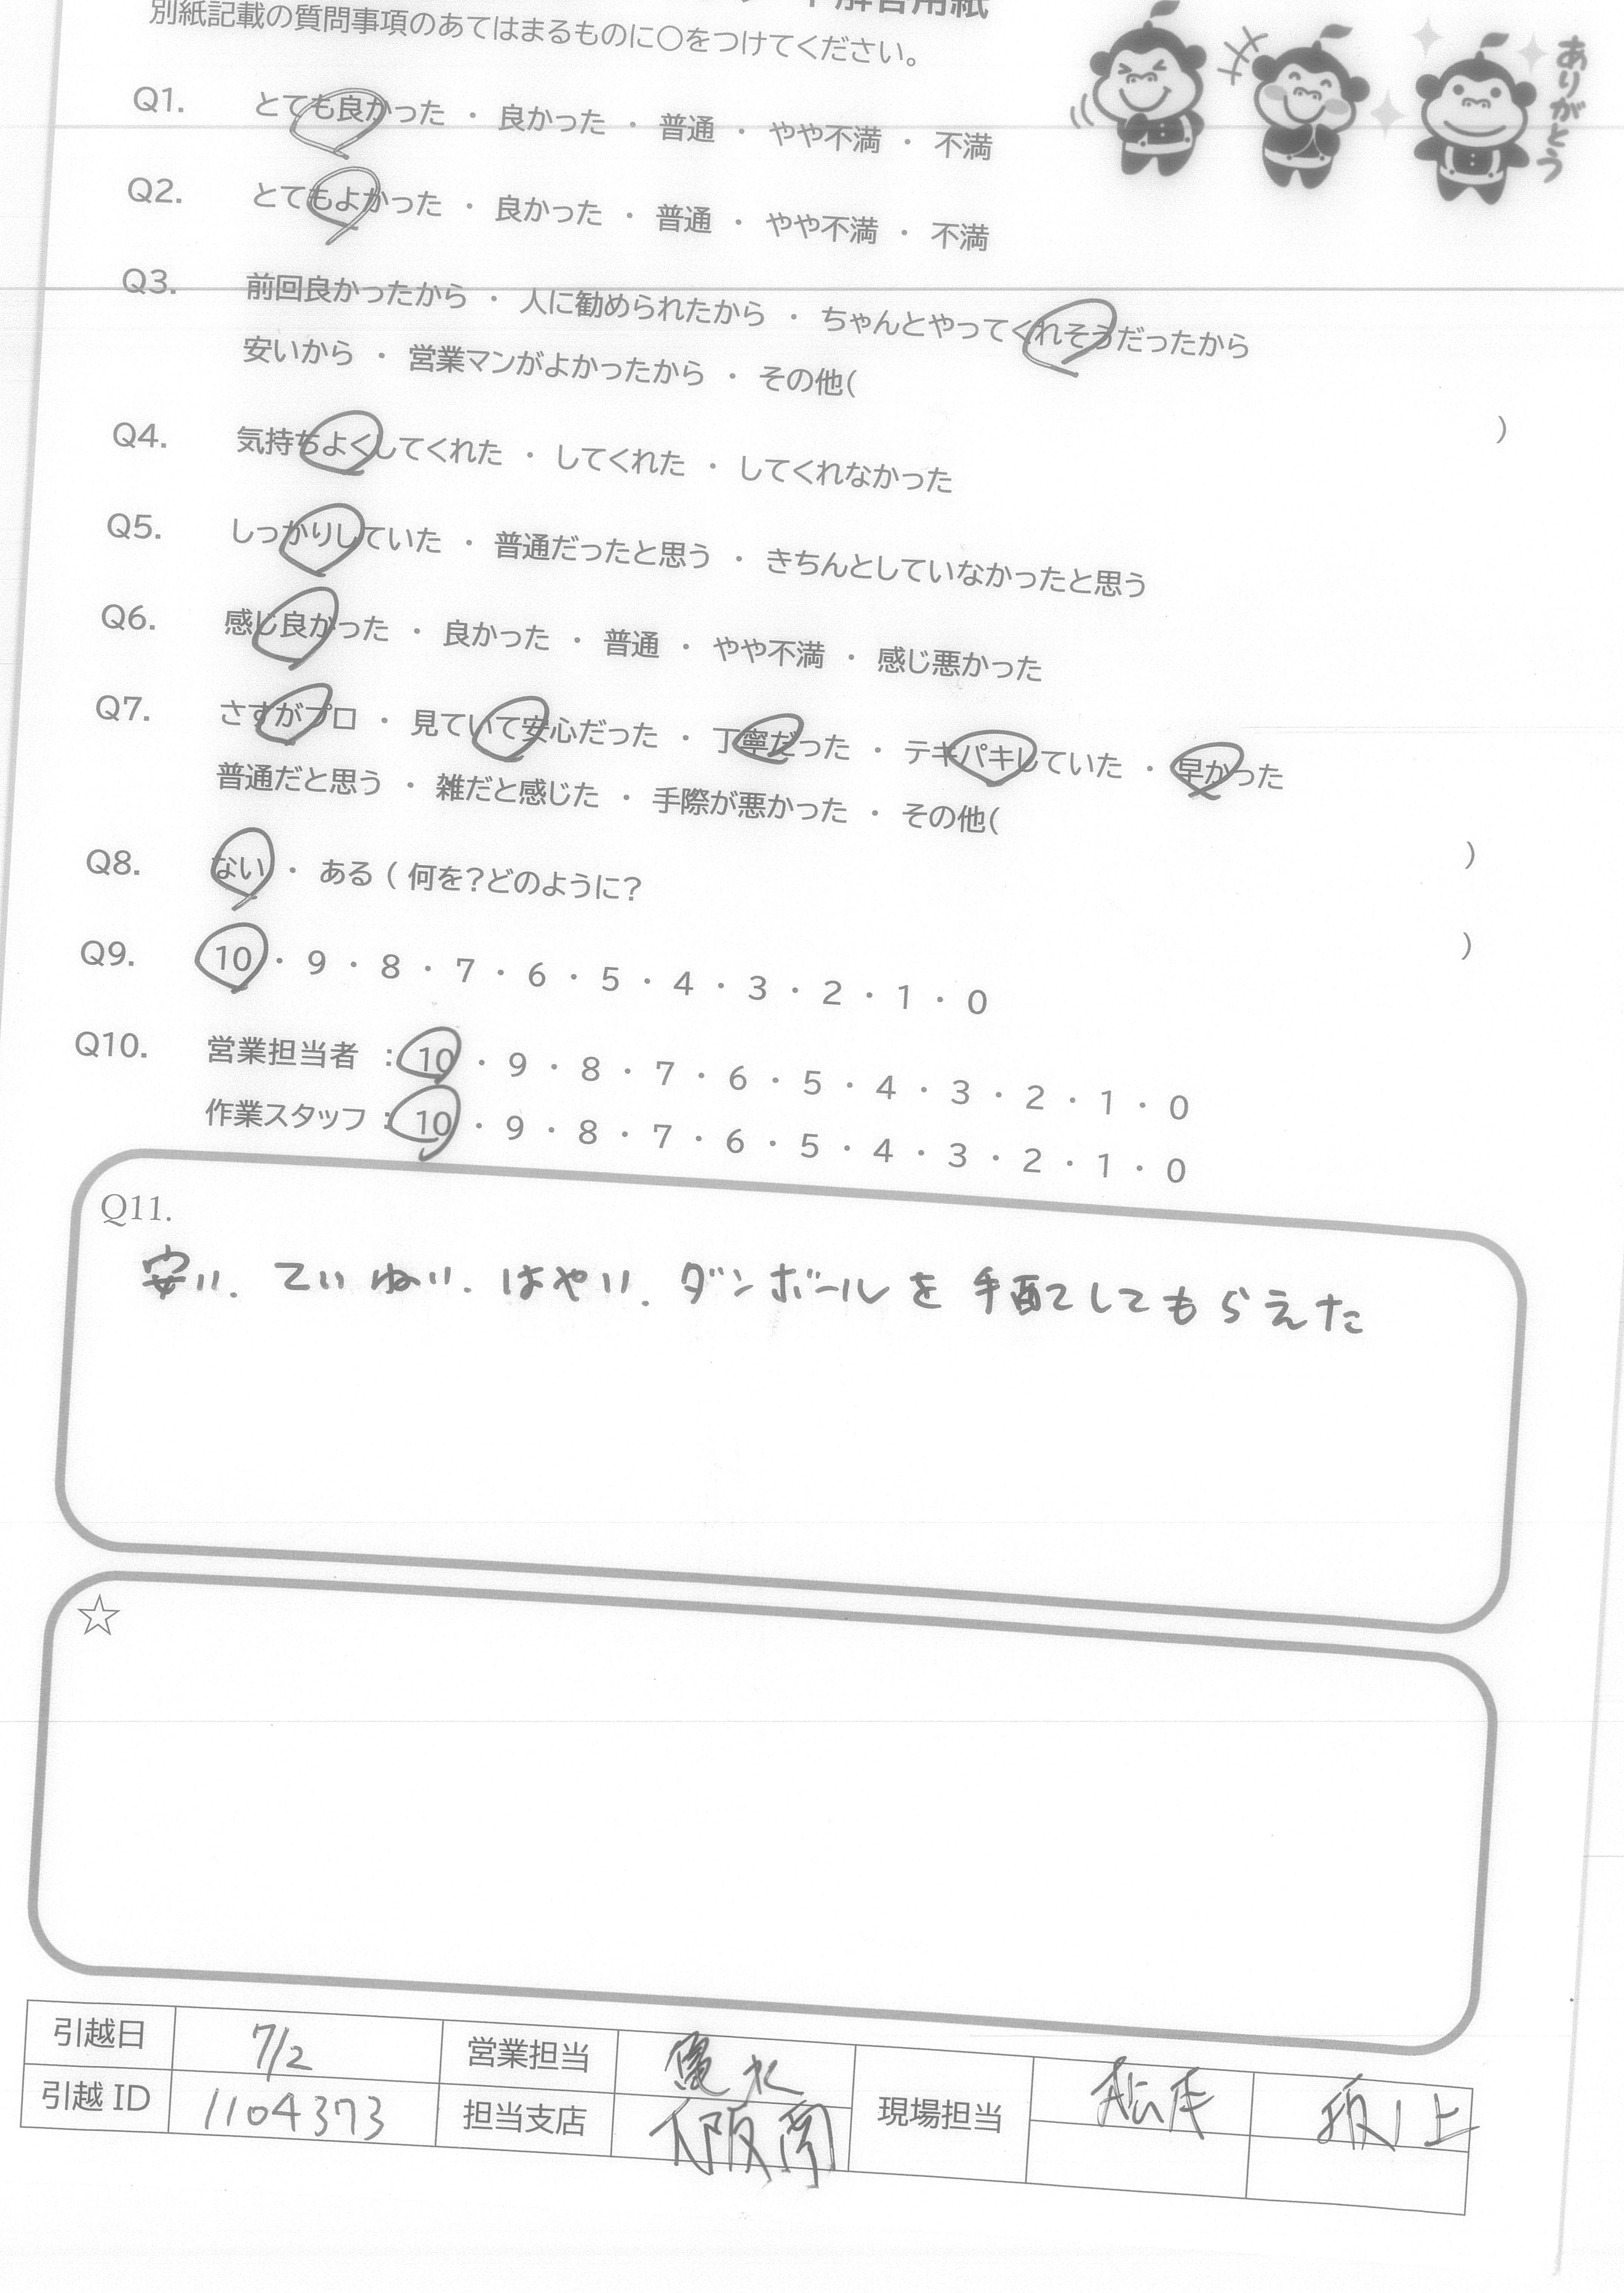 解答用紙
別紙記載の質問事項のあてはまるものに○をつけてください。
ありがとう
Q1. とても良かった ・ 良かった ・ 普通 ・ やや不満 ・ 不満
Q2. とてもよかった ・ 良かった ・ 普通 ・ やや不満 ・ 不満
Q3. 前回良かったから ・ 人に勧められたから ・ ちゃんとやってくれそうだったから
安いから ・ 営業マンがよかったから ・ その他( )
Q4. 気持ちよくしてくれた ・ してくれた ・ してくれなかった
Q5. しっかりしていた ・ 普通だったと思う ・ きちんとしていなかったと思う
Q6. 感じ良かった ・ 良かった ・ 普通 ・ やや不満 ・ 感じ悪かった
Q7. さすがプロ ・ 見ていて安心だった ・ 丁寧だった ・ テキパキしていた ・ 早かった
普通だと思う ・ 雑だと感じた ・ 手際が悪かった ・ その他( )
Q8. ない ・ ある ( 何を?どのように? )
Q9. 10 ・ 9 ・ 8 ・ 7 ・ 6 ・ 5 ・ 4 ・ 3 ・ 2 ・ 1 ・ 0
Q10. 営業担当者 : 10 ・ 9 ・ 8 ・ 7 ・ 6 ・ 5 ・ 4 ・ 3 ・ 2 ・ 1 ・ 0
作業スタッフ : 10 ・ 9 ・ 8 ・ 7 ・ 6 ・ 5 ・ 4 ・ 3 ・ 2 ・ 1 ・ 0
Q11.
安い. ていねい. はやい. ダンボールを手配してもらえた
☆
引越日 7/2 営業担当 現場担当 松本 阪上
引越ID 1104373 担当支店 大阪南